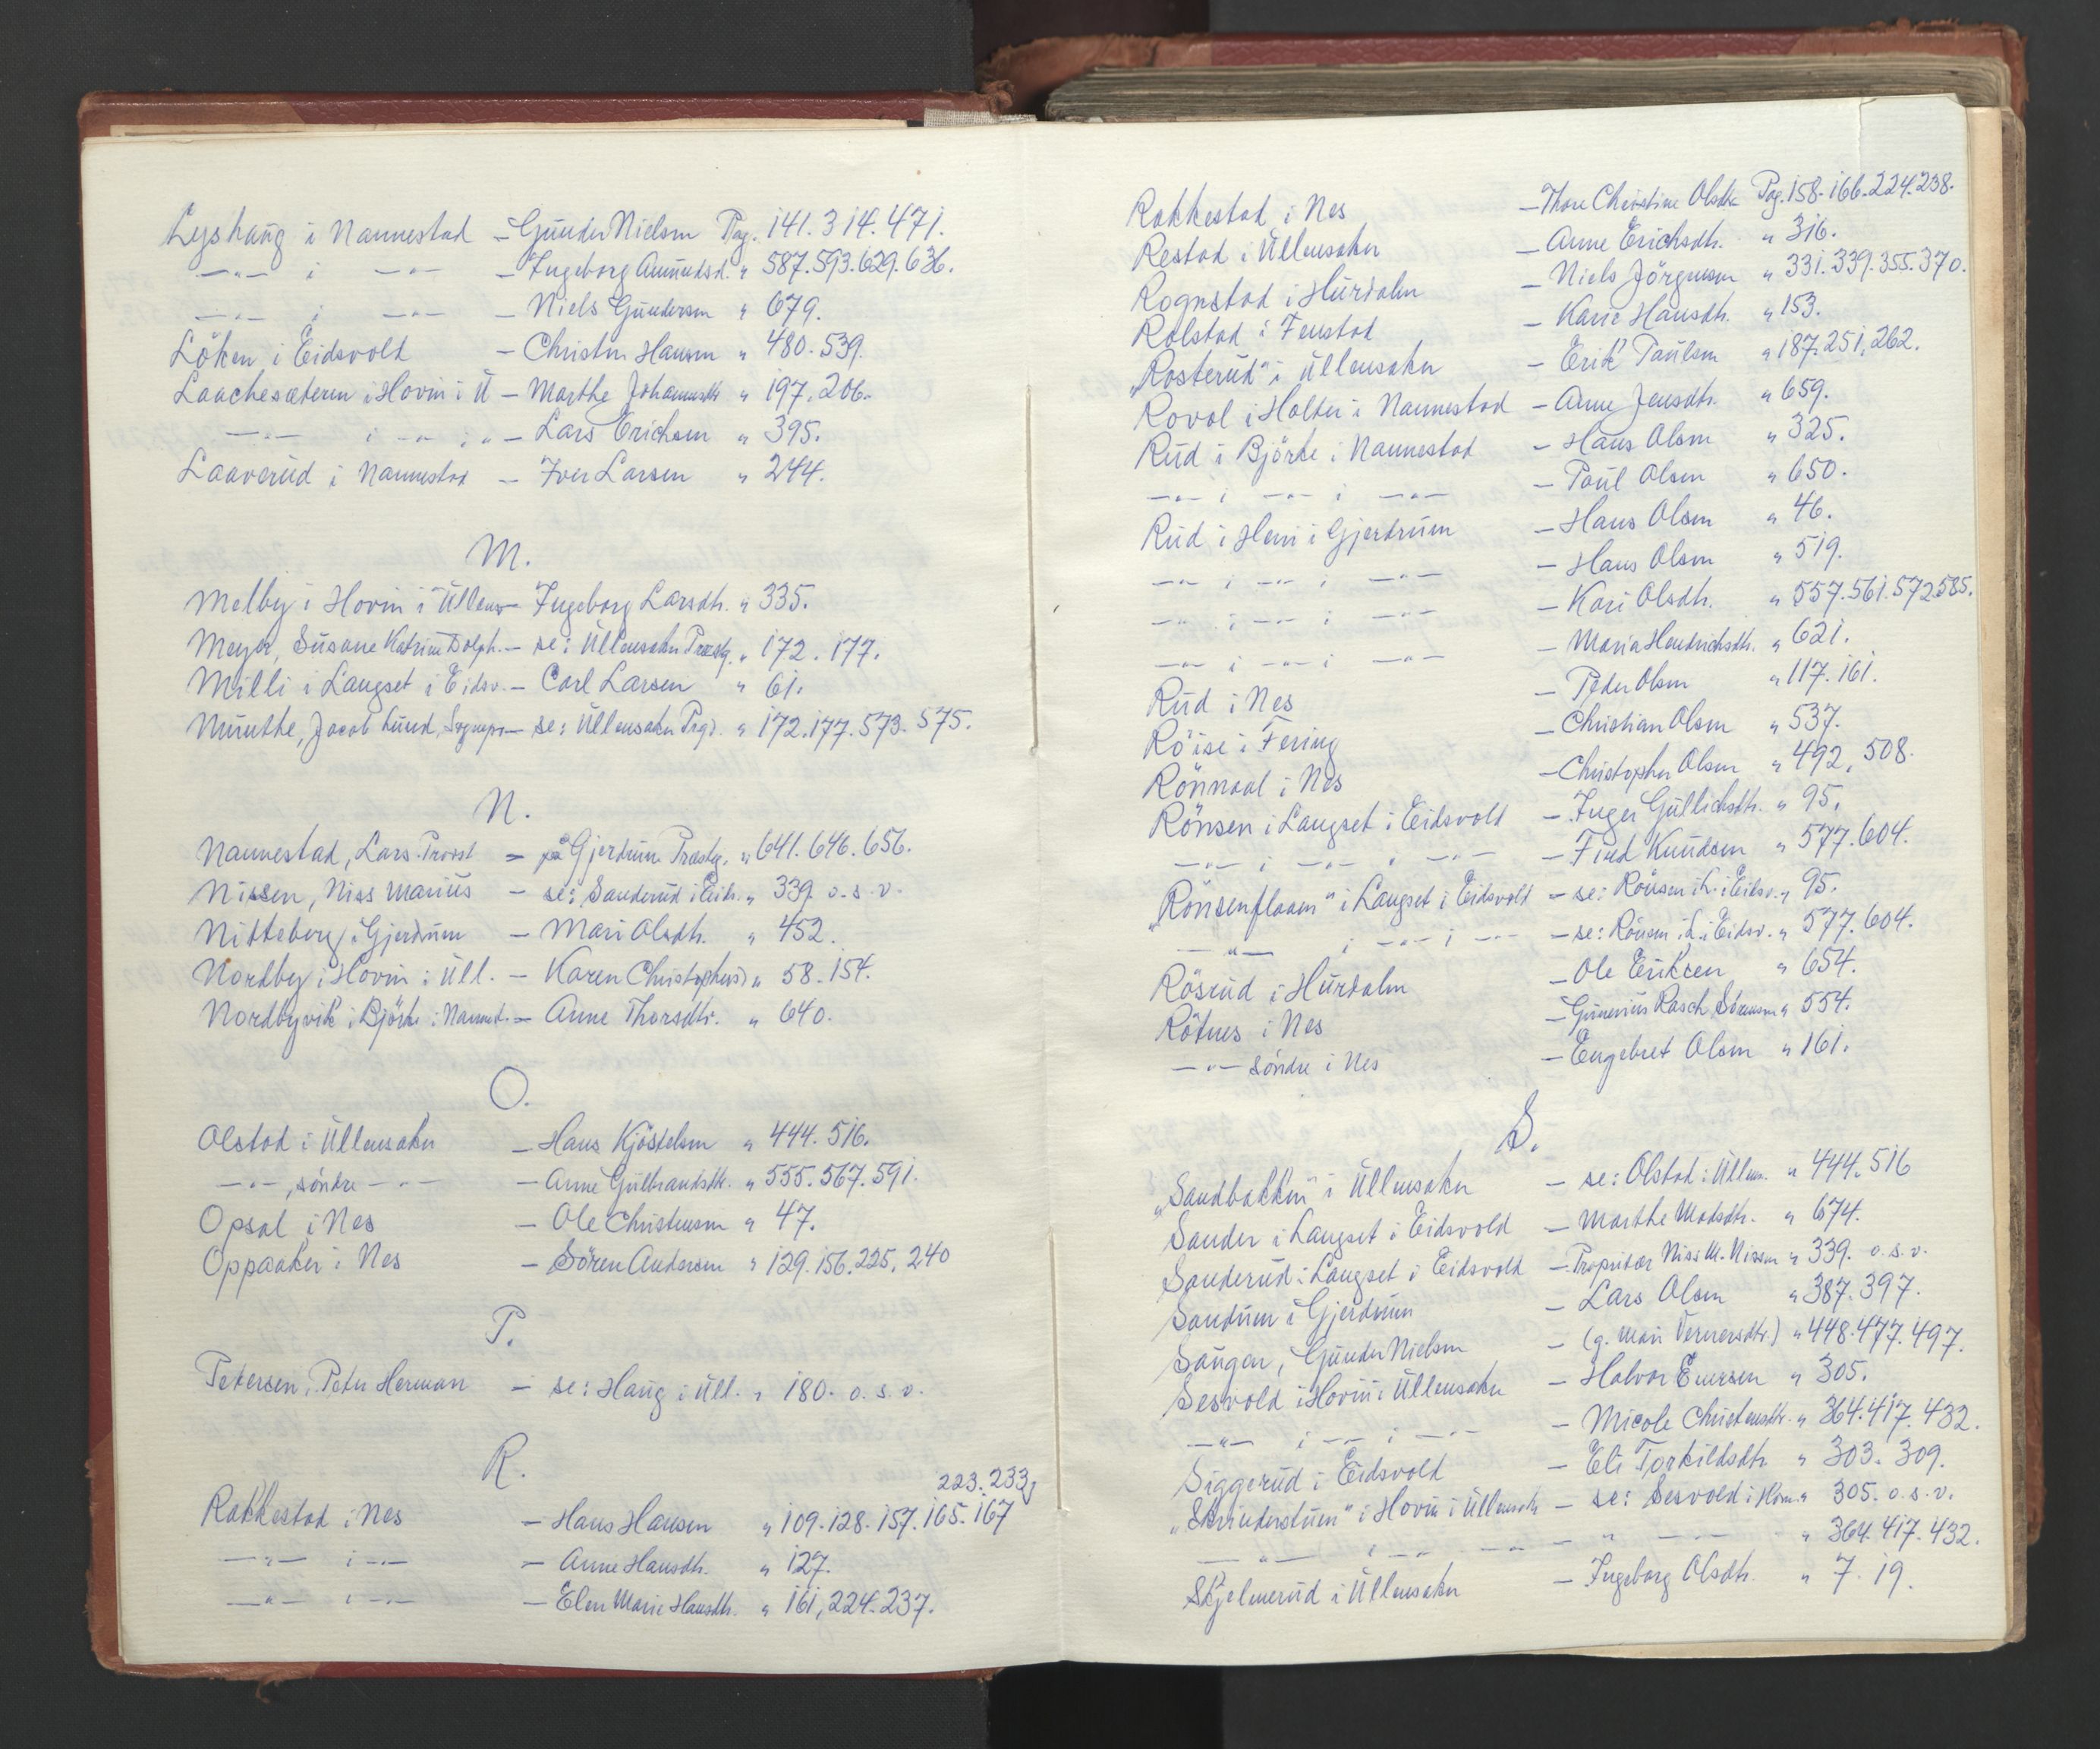 Lyshaug i Nannestad – Gunder Nielsen Pag. 141. 314. 471.
—"— i —"— – Ingeborg Amundsd. " 587. 593. 629. 636.
—"— i —"— – Niels Gundersen " 679.
Löken i Eidsvold – Christen Hansen " 480. 539.
Laachesæteren i Hovin i U – Marthe Johannesdtr " 197, 206.
—"— i —"— i " – Lars Erichsen " 395.
Laaverud i Nannestad – Iver Larsen " 244.
M.
Melby i Hovin i Ullens – Ingeborg Larsdtr. " 335.
Meyer, Susane Katrine Dolph. – se: Ullensaker Præstg. " 172. 177.
Milli i Langset i Eidsv. – Carl Larsen " 61.
Munthe, Jacob Lund, Sognepr – se: Ullensaker Prgd. " 172. 177. 573. 575.
N.
Nannestad, Lars. Provst – på Gjerdrum Præstg. " 641. 646. 656.
Nissen, Niss Marius – se: Sanderud i Eids. " 339. o.s.v.
Nitteberg i Gjerdrum – Mari Olsdtr. " 452.
Nordby i Hovin i Ull. – Karen Christophersd " 58. 154.
Nordbyvik i Björke i Nannest. – Anne Thorsdtr. " 640.
O.
Olstad i Ullensaker – Hans Kjöstelsen " 444. 516.
—"—, söndre —"— – Anne Gulbrandsdtr. " 555. 567. 591.
Opsal i Nes – Ole Christensen " 47.
Oppaaker i Nes – Sören Andersen " 129. 156. 225, 240
P.
Petersen, Peter Herman – se: Haug i Ull. " 180. o.s.v.
R.
223. 233,
Rakkestad i Nes – Hans Hansen " 109. 128. 157. 165. 167
—"— i —"— – Anne Hansdtr. " 127.
—"— i —"— – Elen Marie Hansdtr. " 161, 224. 237.
Rakkestad i Nes – Thore Christine Olsdtr Pag. 158. 166. 224. 238.
Restad i Ullensaker – Anne Erichsdtr. " 316.
Rognstad i Hurdalen – Niels Jörgensen " 331. 339. 355. 370.
Rolstad i Fenstad – Karie Hansdtr. " 153.
"Rosterud" i Ullensaker – Erik Paulsen " 187. 251, 262.
Rovol i Holter i Nannestad – Anne Jensdtr. " 659.
Rud i Björke i Nannestad – Hans Olsen " 325.
—"— i —"— i —"— – Paul Olsen " 650.
Rud i Heni i Gjerdrum – Hans Olsen " 46.
—"— i —"— i —"— – Hans Olsen " 519.
—"— i —"— i —"— – Kari Olsdtr. " 557. 561. 572. 585.
—"— i —"— i —"— – Maria Hendrichsdtr. " 621.
Rud i Nes – Peder Olsen " 117. 161.
Röise i Fering – Christian Olsen " 537.
Rönnaal i Nes – Christopher Olsen " 492, 508.
Rönsen i Langset i Eidsvold – Inger Gullichsdtr. " 95.
—"— i —"— i —"— – Find Knudsen " 577. 604.
"Rönsenflaaen" i Langset i Eidsvold – se: Rönsen i L. i Eidsv. " 95.
—"— i —"— i —"— – se: Rönsen i L. i Eidsv. " 577. 604.
Rösrud i Hurdalen – Ole Eriksen " 654.
Rötnes i Nes – Gunerius Rasch Sörensen " 554.
—"— söndre i Nes – Engebret Olsen " 161.
S.
"Sandbakken" i Ullensaker – se: Olstad i Ullens. " 444. 516
Sander i Langset i Eidsvold – Marthe Madsdtr. " 674.
Sanderud i Langset i Eidsvold – Propritær Niss M. Nissen " 339. o.s.v.
Sandum i Gjerdrum – Lars Olsen " 387. 397.
Saugen, Gunder Nielsen – (g. Mari Vernersdtr.) " 448. 477. 497.
Sesvold i Hovin i Ullensaker – Halvor Enersen " 305.
—"— i —"— i —"— – Micole Christensdtr. " 364. 417. 432.
Siggerud i Eidsvold – Eli Torkildsdtr " 303. 309.
"Skrinderstuen" i Hovin i Ullensaker – se: Sesvold i Hovin " 305. o.s.v.
—"— i —"— —"— – " —"— " 364. 417. 432.
Skjelmerud i Ullensaker – Ingeborg Olsdtr. " 7. 19.